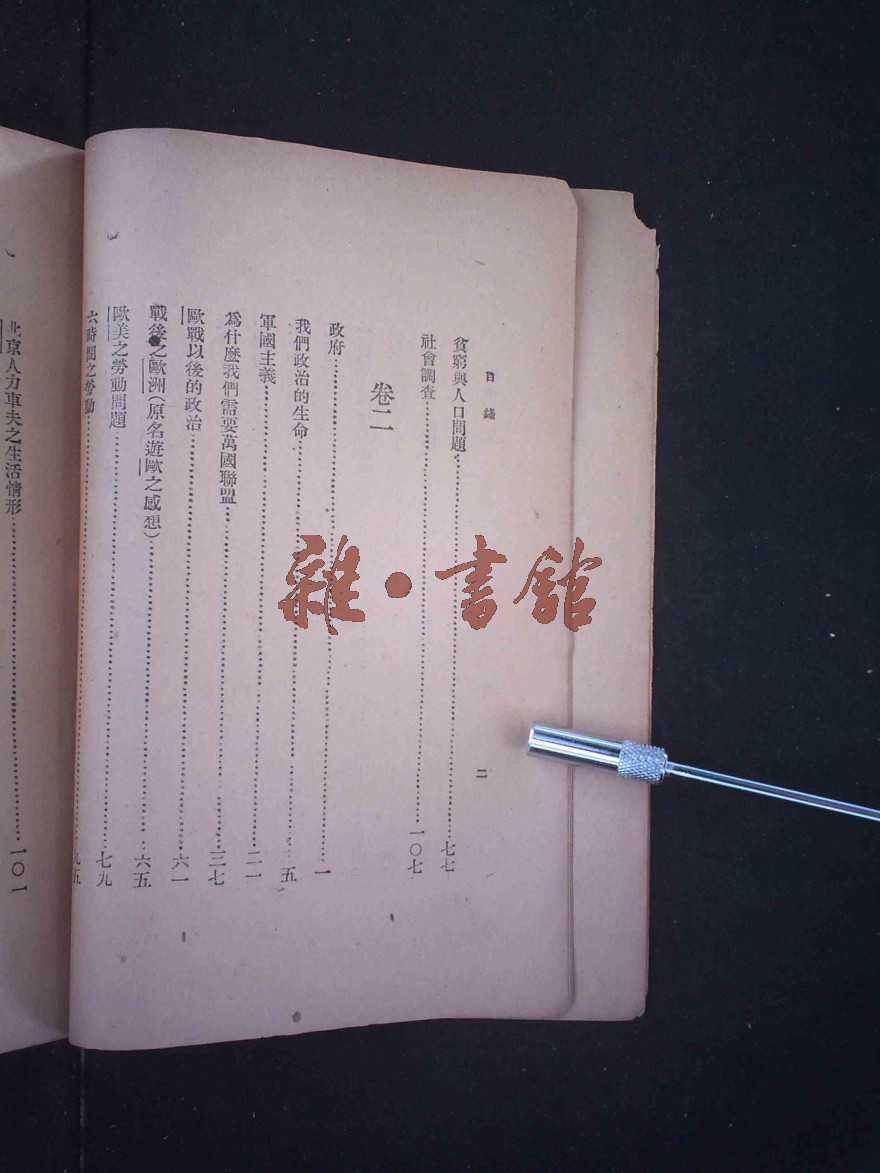 目錄
二
貧窮與人口問題……七七
社會調查……一〇七
卷二
政府……一
我們政治的生命……五
軍國主義……二一
爲什麽我們需要萬國聯盟……三七
歐戰以後的政治……六一
戰後之歐洲(原名遊歐之感想)……六五
歐美之勞動問題……七九
六時間之勞動……九五
北京人力車夫之生活情形……一〇一
雜·書館